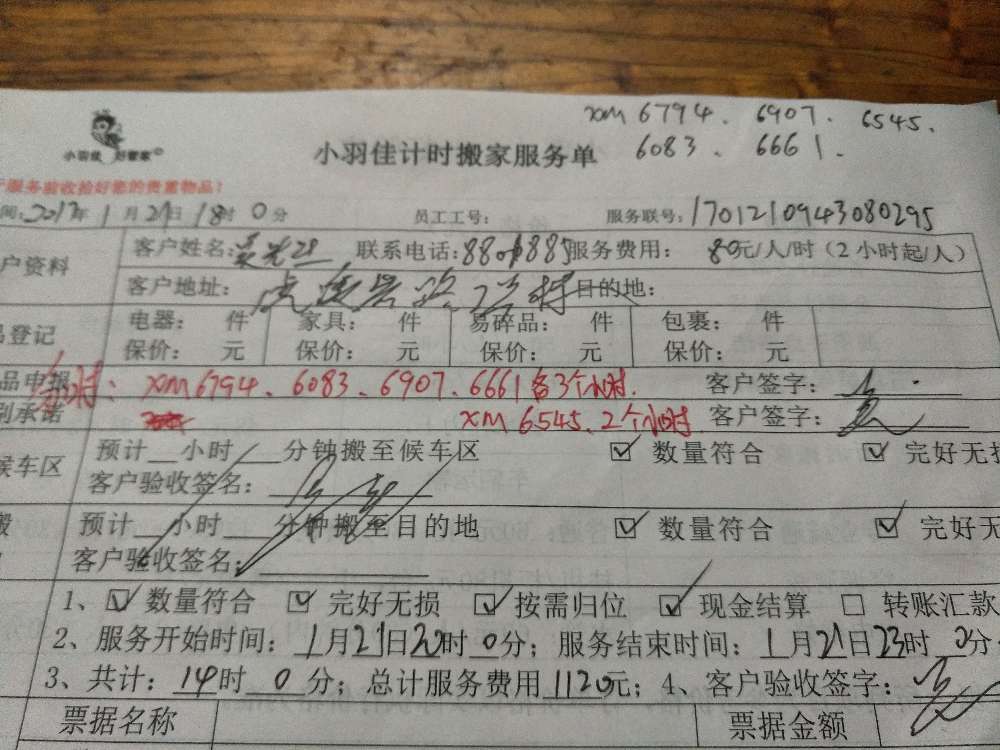 XM 6794. 6907. 6545.
6083. 6661.
小羽佳 好管家
小羽佳计时搬家服务单
服务验收拾好您的贵重物品!
间:2017年1月21日18时0分 员工工号: 服务联号:1701210943080295
户资料 客户姓名: 联系电话: 服务费用: 80元/人/时(2小时起/人)
客户地址: 目的地:
品登记 电器: 件 家具: 件 易碎品: 件 包裹: 件
保价: 元 保价: 元 保价: 元 保价: 元
品申报 XM6794.6083.6907.6661各3个小时. 客户签字:
别承诺 XM 6545.2个小时 客户签字:
候车区 预计__小时__分钟搬至候车区 数量符合 完好无损
客户验收签名:
搬 预计__小时__分钟搬至目的地 数量符合 完好无
客户验收签名:
1、☑数量符合 ☑完好无损 ☑按需归位 ☑现金结算 □转账汇款
2、服务开始时间:1月21日20时0分;服务结束时间:1月21日23时0分
3、共计:14时0分;总计服务费用1120元;4、客户验收签字:
票据名称 票据金额